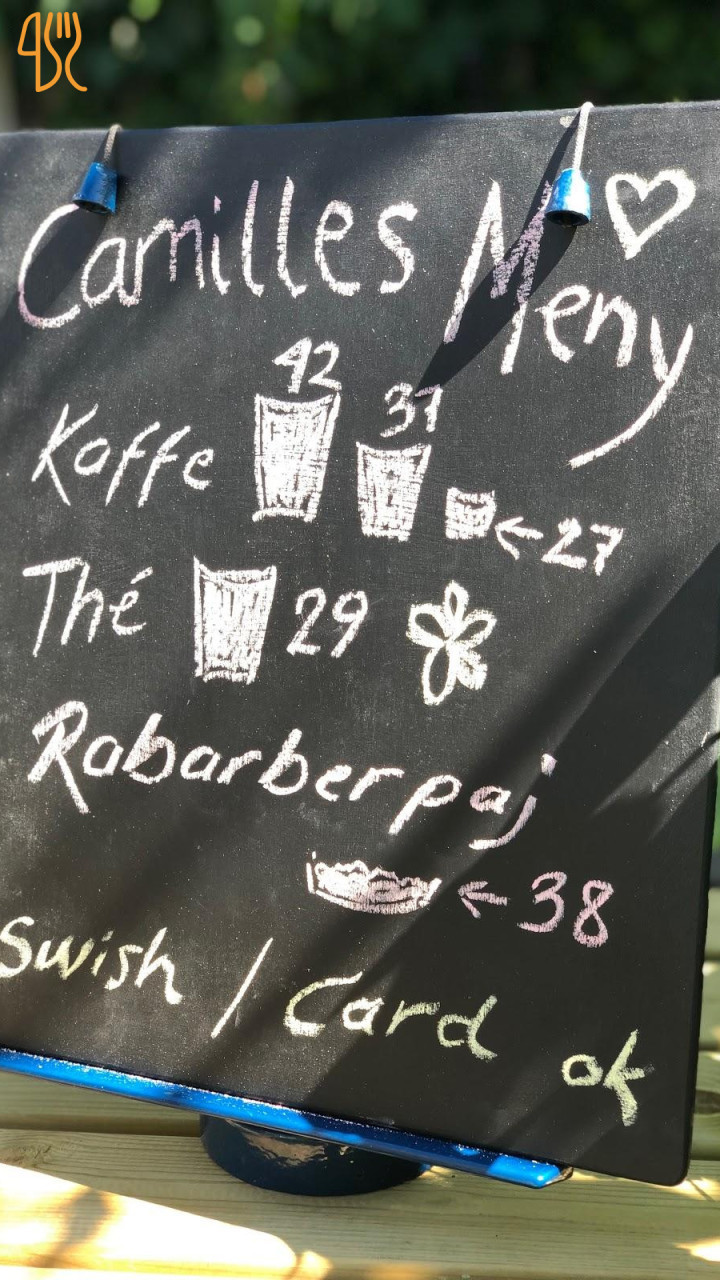 Camilles Meny
Kaffe 42 31 ←27
Thé 29
Rabarberpaj
←38
Swish / Card ok